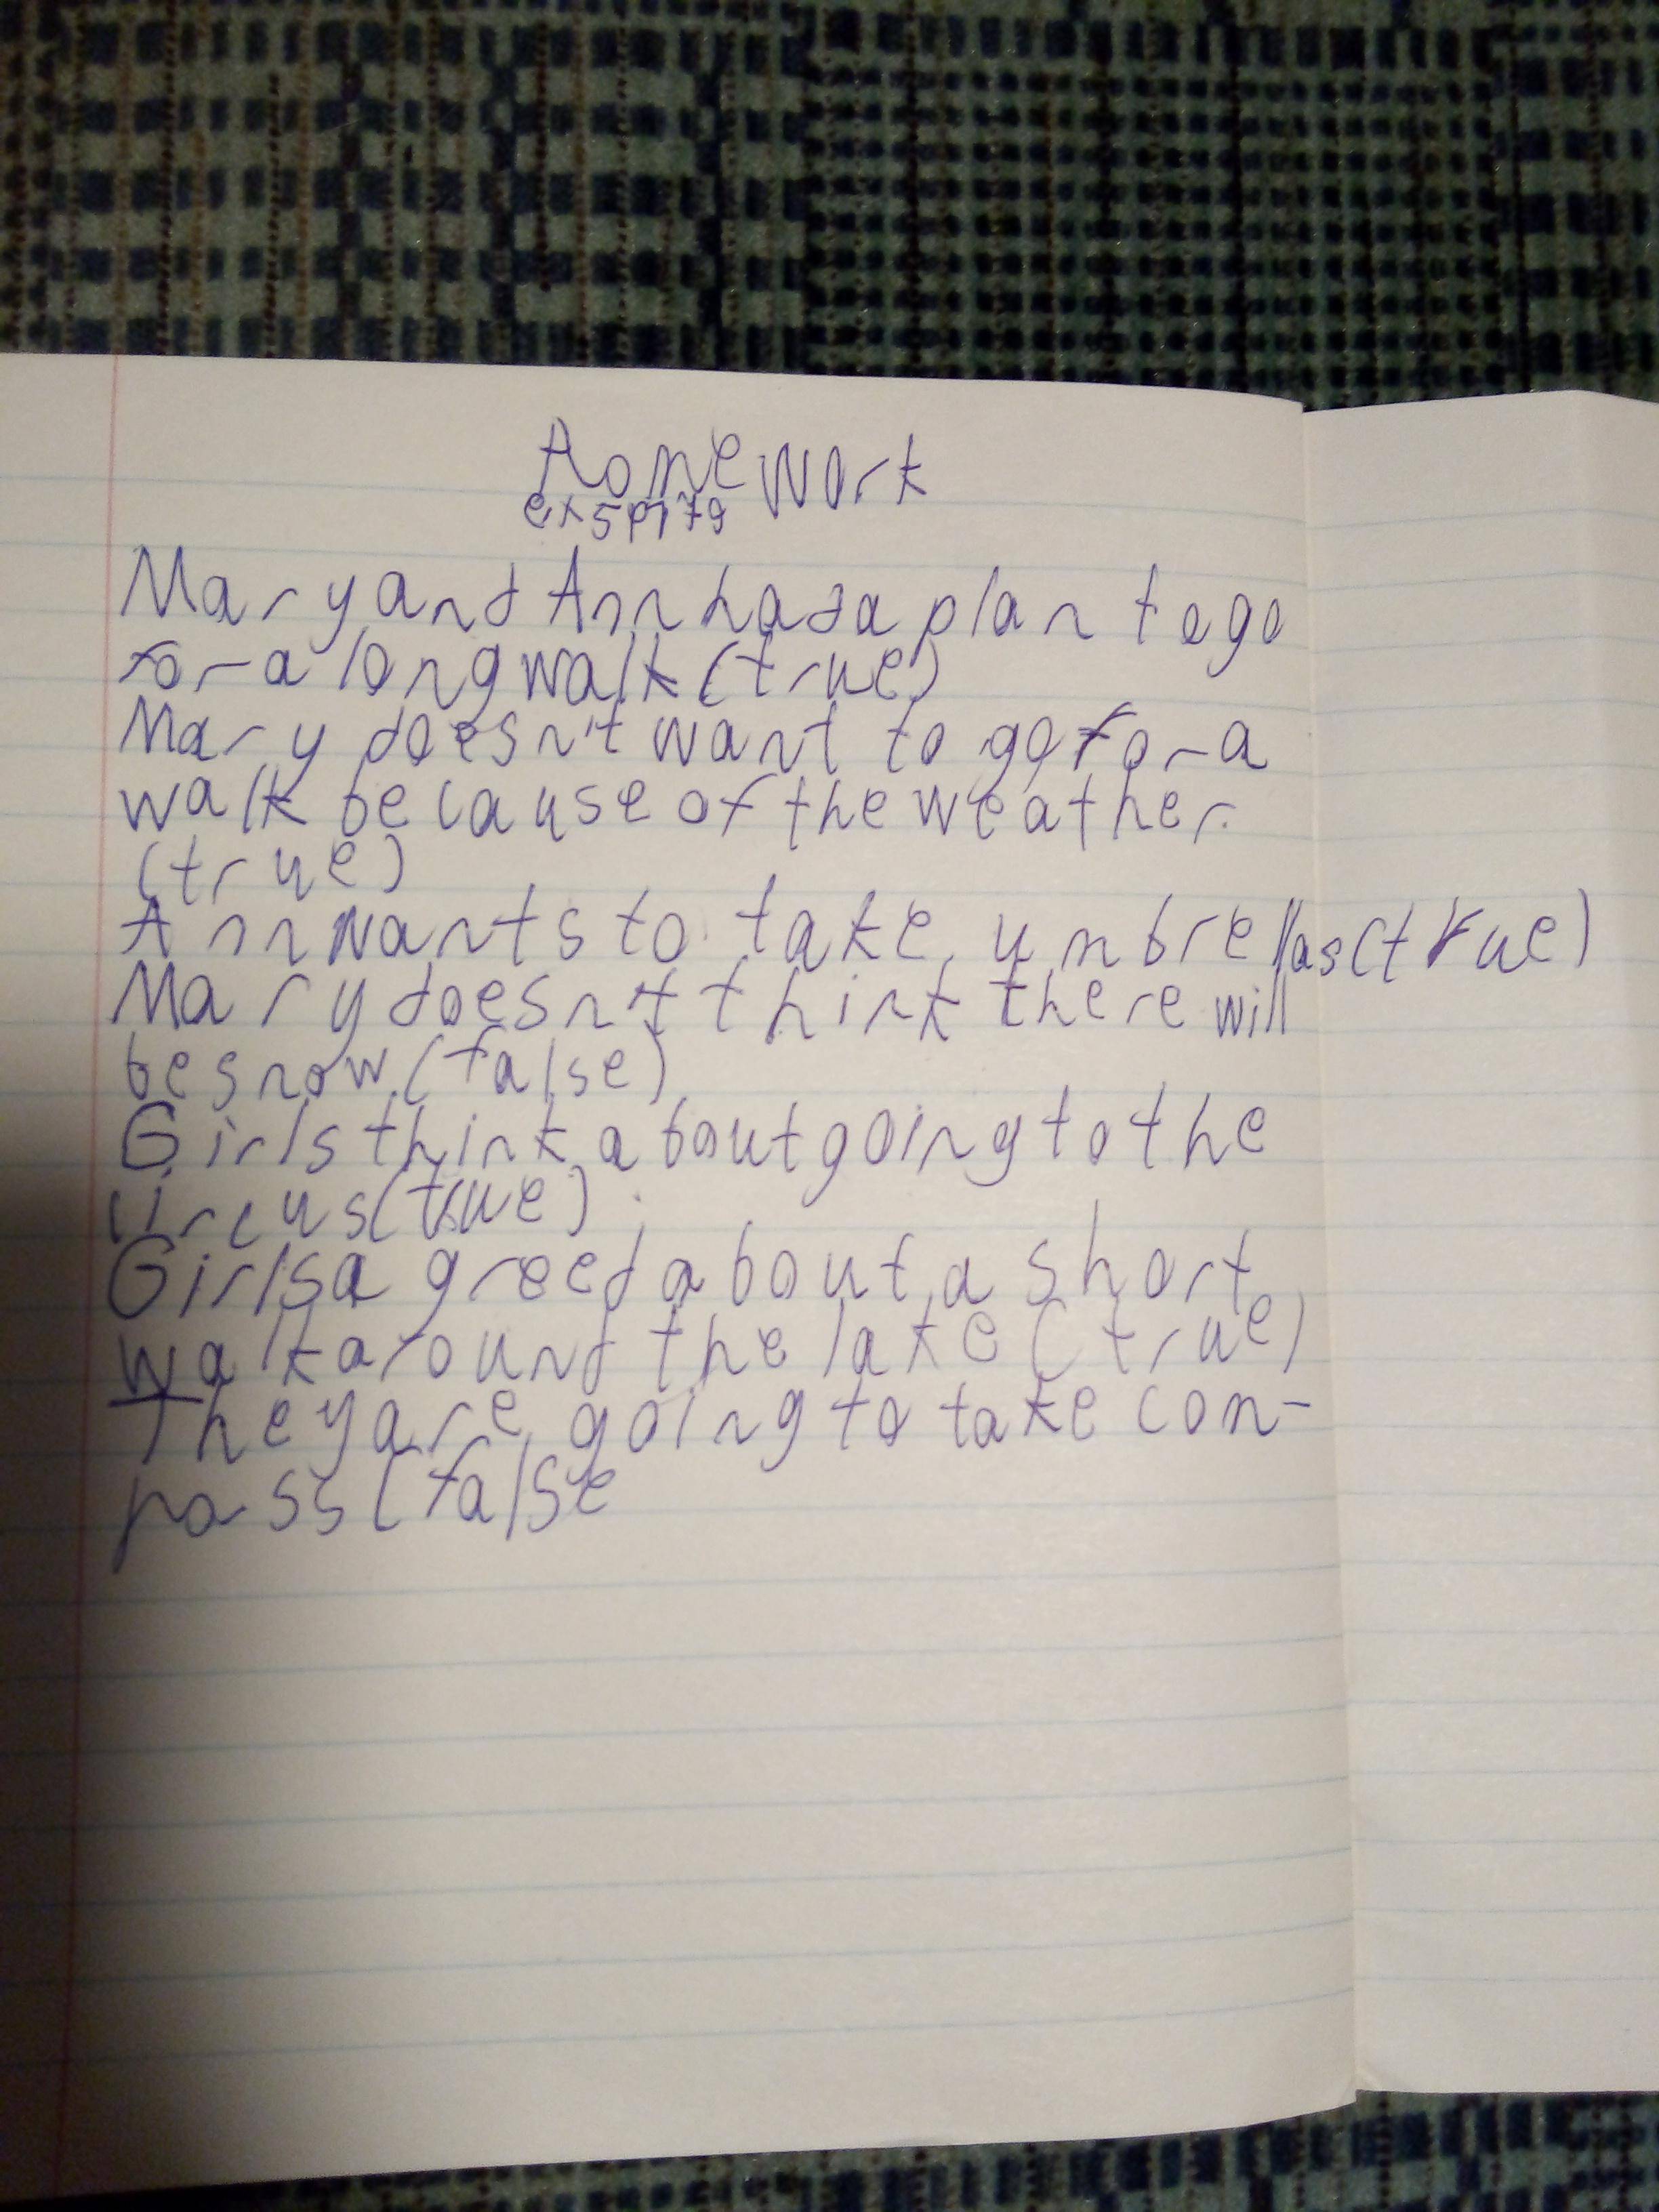 Homework
ex 5 p 179
Mary and Ann had a plan to go
for a long walk (true)
Mary doesn't want to go for a
walk because of the weather.
(true)
Ann wants to take umbrellas (true)
Mary doesn't think there will
be snow. (false)
Girls think about going to the
circus (true)
Girls agreed about a short
walk around the lake (true)
They are going to take com-
pass (false